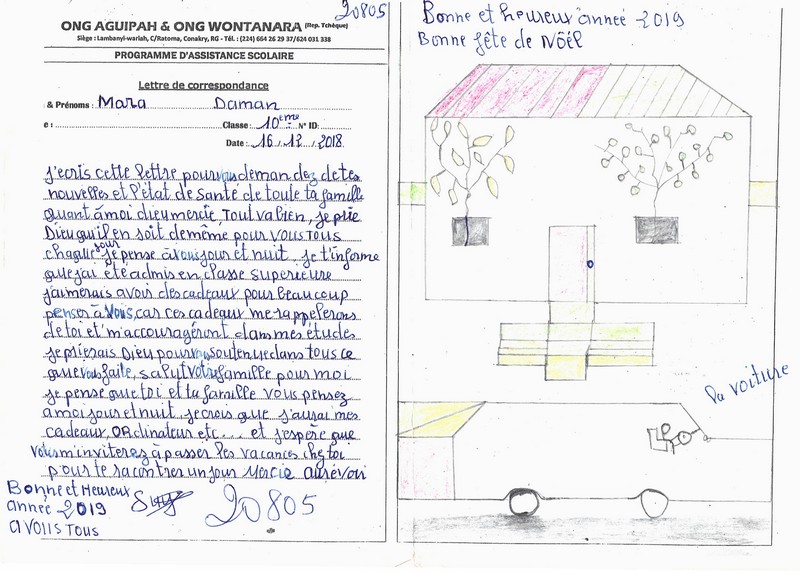 20805
ONG AGUIPAH & ONG WONTANARA (Rep. Tchèque)
Siège : Lambanyi-wariah, C/Ratoma, Conakry, RG - Tél. : (224) 664 26 29 37/624 031 338
PROGRAMME D'ASSISTANCE SCOLAIRE
Lettre de correspondance
& Prénoms : Mara Daman
e : Classe : 10ème N° ID:
Date : 16 / 12 / 2018
j'ecris cette lettre pour vous deman dez de tes
nouvelles et l'état de santé de toute ta famille
quant à moi dieu mercie, Tout va bien, je prie
Dieu qu'il en soit de même pour VOUS TOUS
chaque jour je pense à vous jour et nuit. je t'informe
que j'ai été admis en classe superieure
j'aimerais avoir des cadeaux pour beaucoup
penser à Vous, car ces cadeaux me rappelerons
de toi et m'accouragéront dans mes études
je prierais Dieu pour vous soutenue dans tous ce
que vous faite, salut votre famille pour moi
je pense que toi et ta famille vous pensez
à moi jour et nuit, je crois que j'aurai mes
cadeaux, ORdinateur etc.... et j'espère que
Vous m'inviterez à passer les vacances chez toi
pour te racontrer un jour Mercie aurévoir
Bonne et Heureux
année 2019
A VOUS TOUS
20805
Bonne et heureux année 2019
Bonne fête de Nôél
La voiture